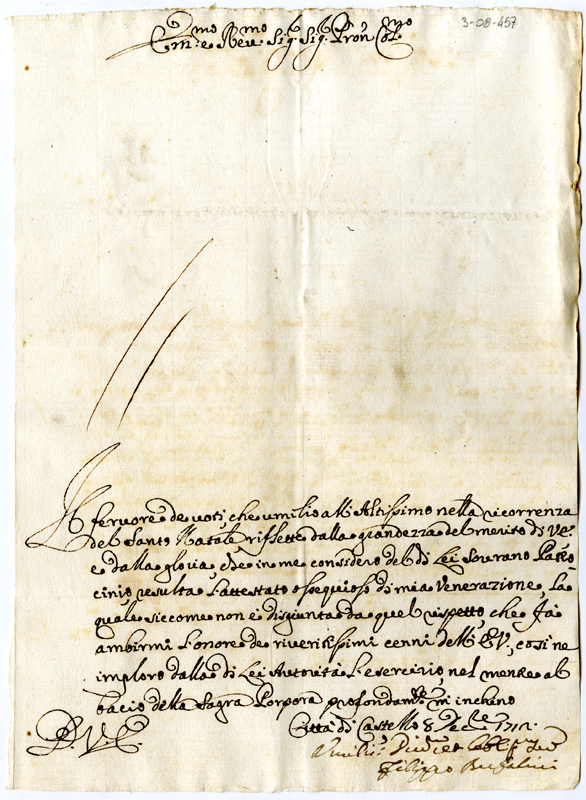 3-08-457
Em.mo e Rev.mo Sig.r Sig.r Pron Col.mo
Il fervore de voti, che umilio all'Altissimo nella ricorrenza
del Santo Natale riflette dalla grandezza del merito di V.E.
e dalla gloria, che in me considero del di Lei Sovrano Patro
cinio, resulta l'attestato ossequioso di mia Venerazione, La
quale siccome non è disgiunta da quel rispetto, che fà
ambirmi l'onore de riveritissimi cenni dell'E.V., così ne
imploro dalla di Lei Autorità l'esercizio, nel mentre al
bacio della Sagra Porpora profondam.te m'inchino
Città di Castello 8 Xe.bre 1712.
D.V.E.
Umiliss.
Filippo Bufalini